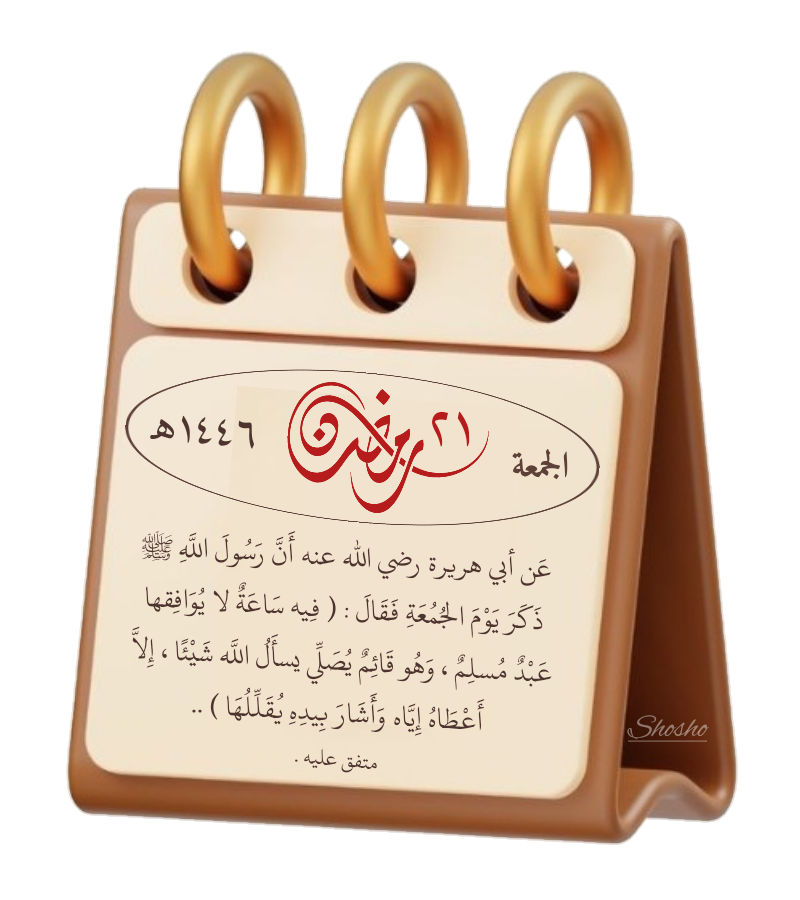 الجمعة ٢١ رمضان ١٤٤٦هـ
عَن أبي هريرة رضي الله عنه أَنَّ رَسُولَ اللَّهِ ﷺ
ذَكَرَ يَوْمَ الجُمُعَةِ فَقَالَ : ( فِيه سَاعَةٌ لا يُوَافِقها
عَبْدٌ مُسلِمٌ ، وَهُو قَائِمٌ يُصَلِّي يسأَلُ اللَّه شَيْئًا ، إِلاَّ
أَعْطَاهُ إِيَّاه وَأَشَارَ بِيدِهِ يُقَلِّلُهَا ) ..
متفق عليه .
Shosho